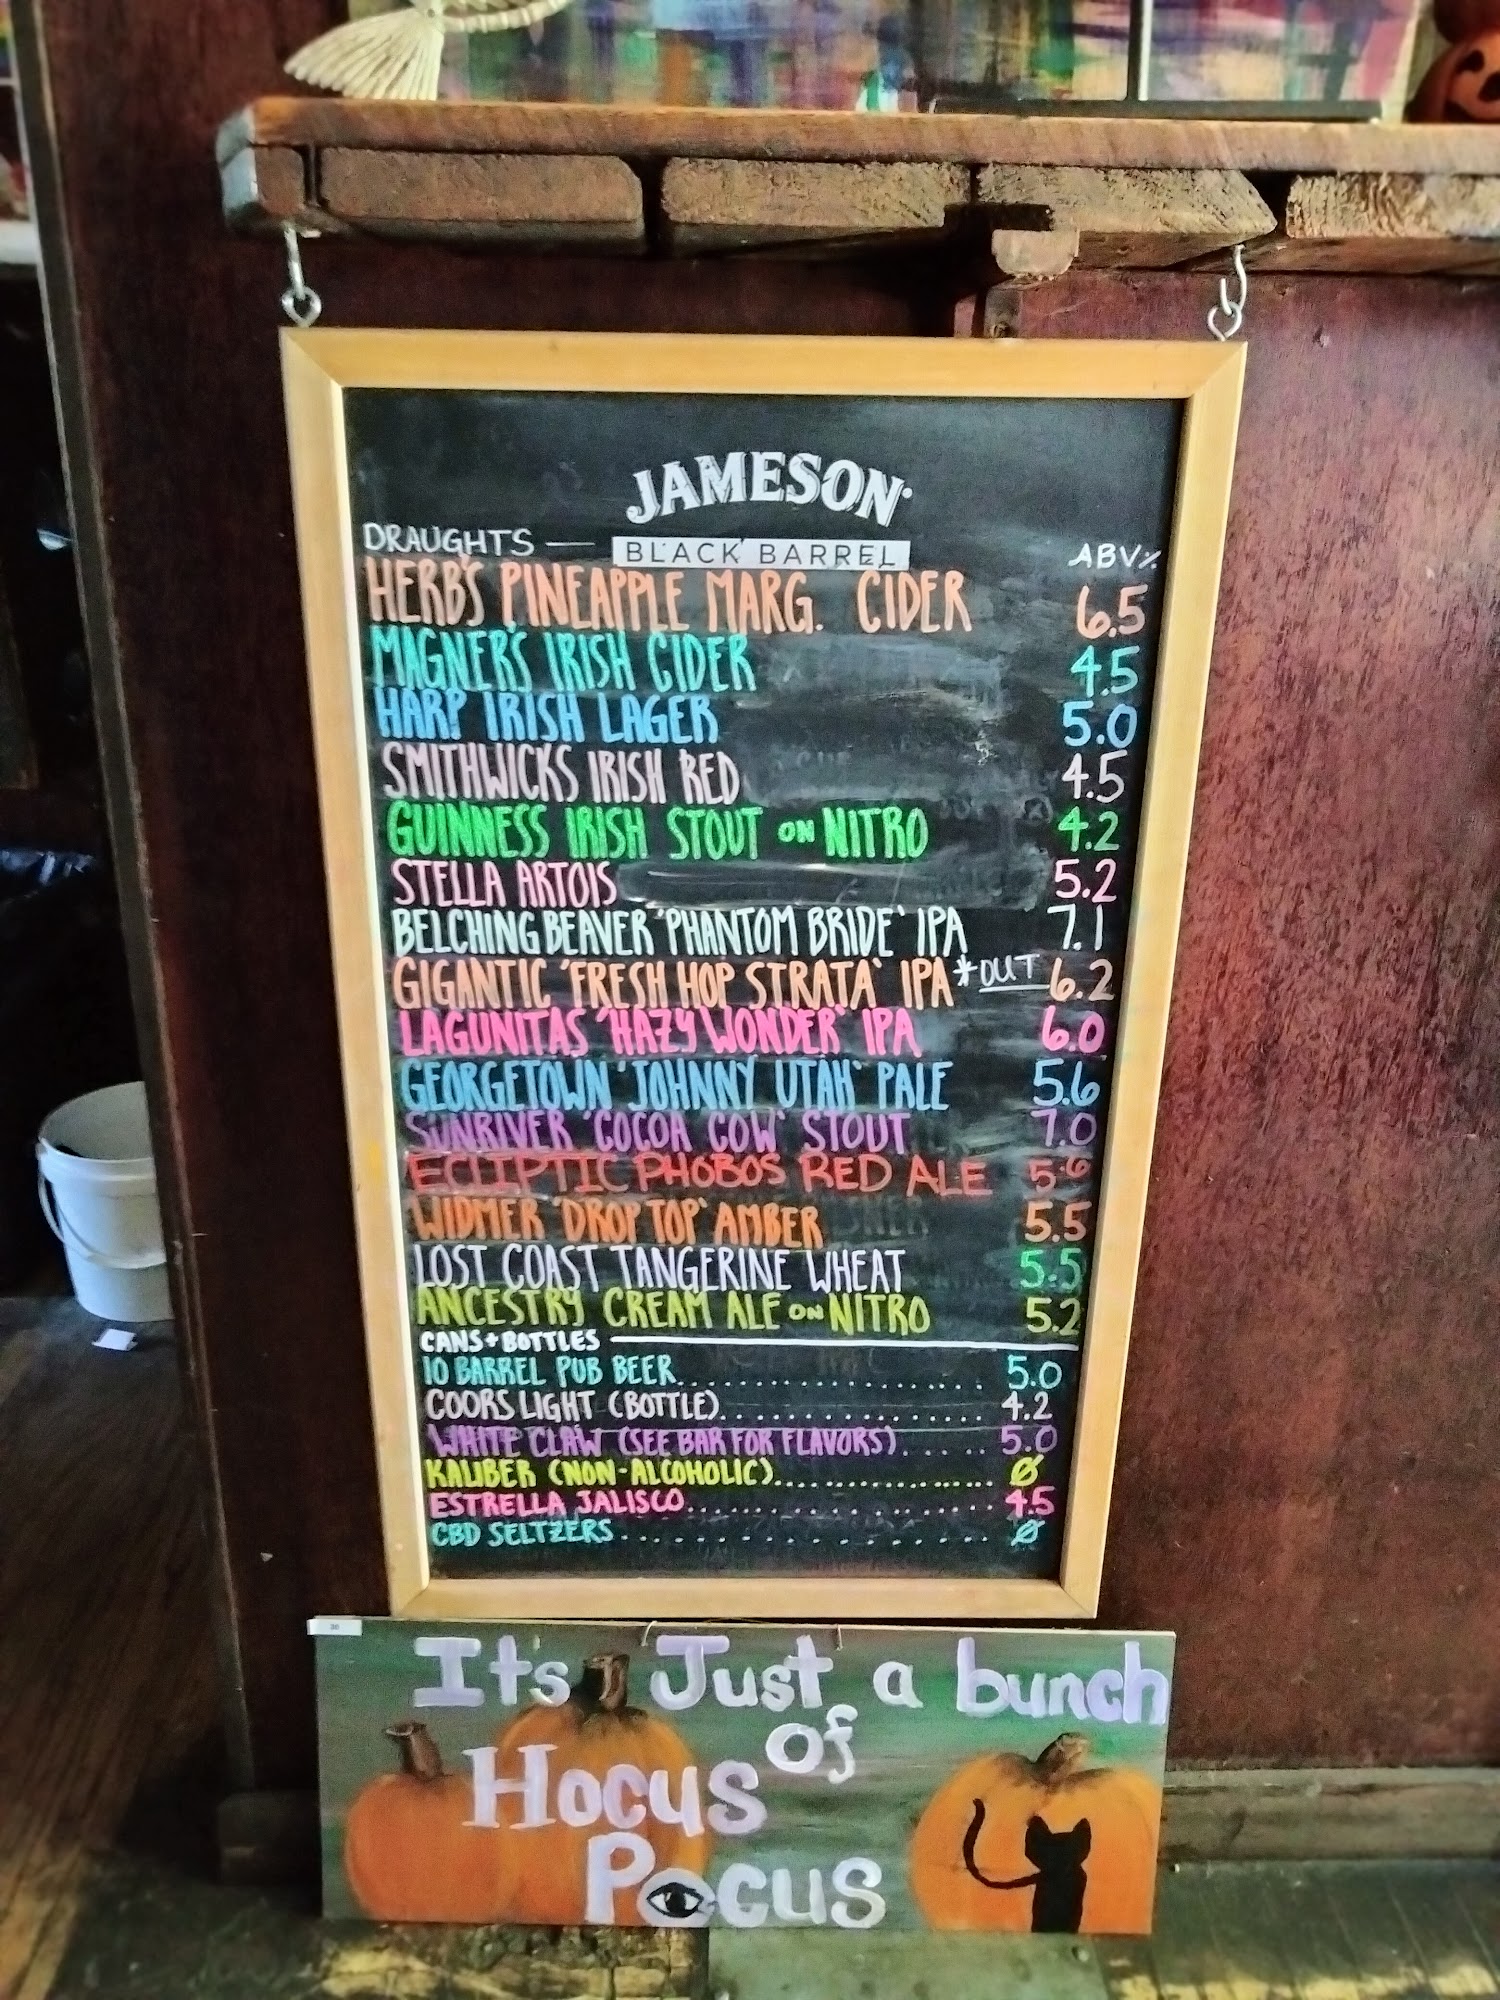 JAMESON
BLACK BARREL
DRAUGHTS — ABV%
HERB'S PINEAPPLE MARG. CIDER 6.5
MAGNER'S IRISH CIDER 4.5
HARP IRISH LAGER 5.0
SMITHWICKS IRISH RED 4.5
GUINNESS IRISH STOUT ON NITRO 4.2
STELLA ARTOIS 5.2
BELCHING BEAVER 'PHANTOM BRIDE' IPA 7.1
GIGANTIC 'FRESH HOP STRATA' IPA *OUT 6.2
LAGUNITAS 'HAZY WONDER' IPA 6.0
GEORGETOWN 'JOHNNY UTAH' PALE 5.6
SUNRIVER 'COCOA COW' STOUT 7.0
ECLIPTIC PHOBOS RED ALE 5.6
WIDMER 'DROP TOP' AMBER 5.5
LOST COAST TANGERINE WHEAT 5.5
ANCESTRY CREAM ALE ON NITRO 5.2
CANS + BOTTLES
10 BARREL PUB BEER 5.0
COORS LIGHT (BOTTLE) 4.2
WHITE CLAW (SEE BAR FOR FLAVORS) 5.0
KALIBER (NON-ALCOHOLIC) Ø
ESTRELLA JALISCO 4.5
CBD SELTZERS Ø
It's Just a bunch
of
Hocus
Pocus